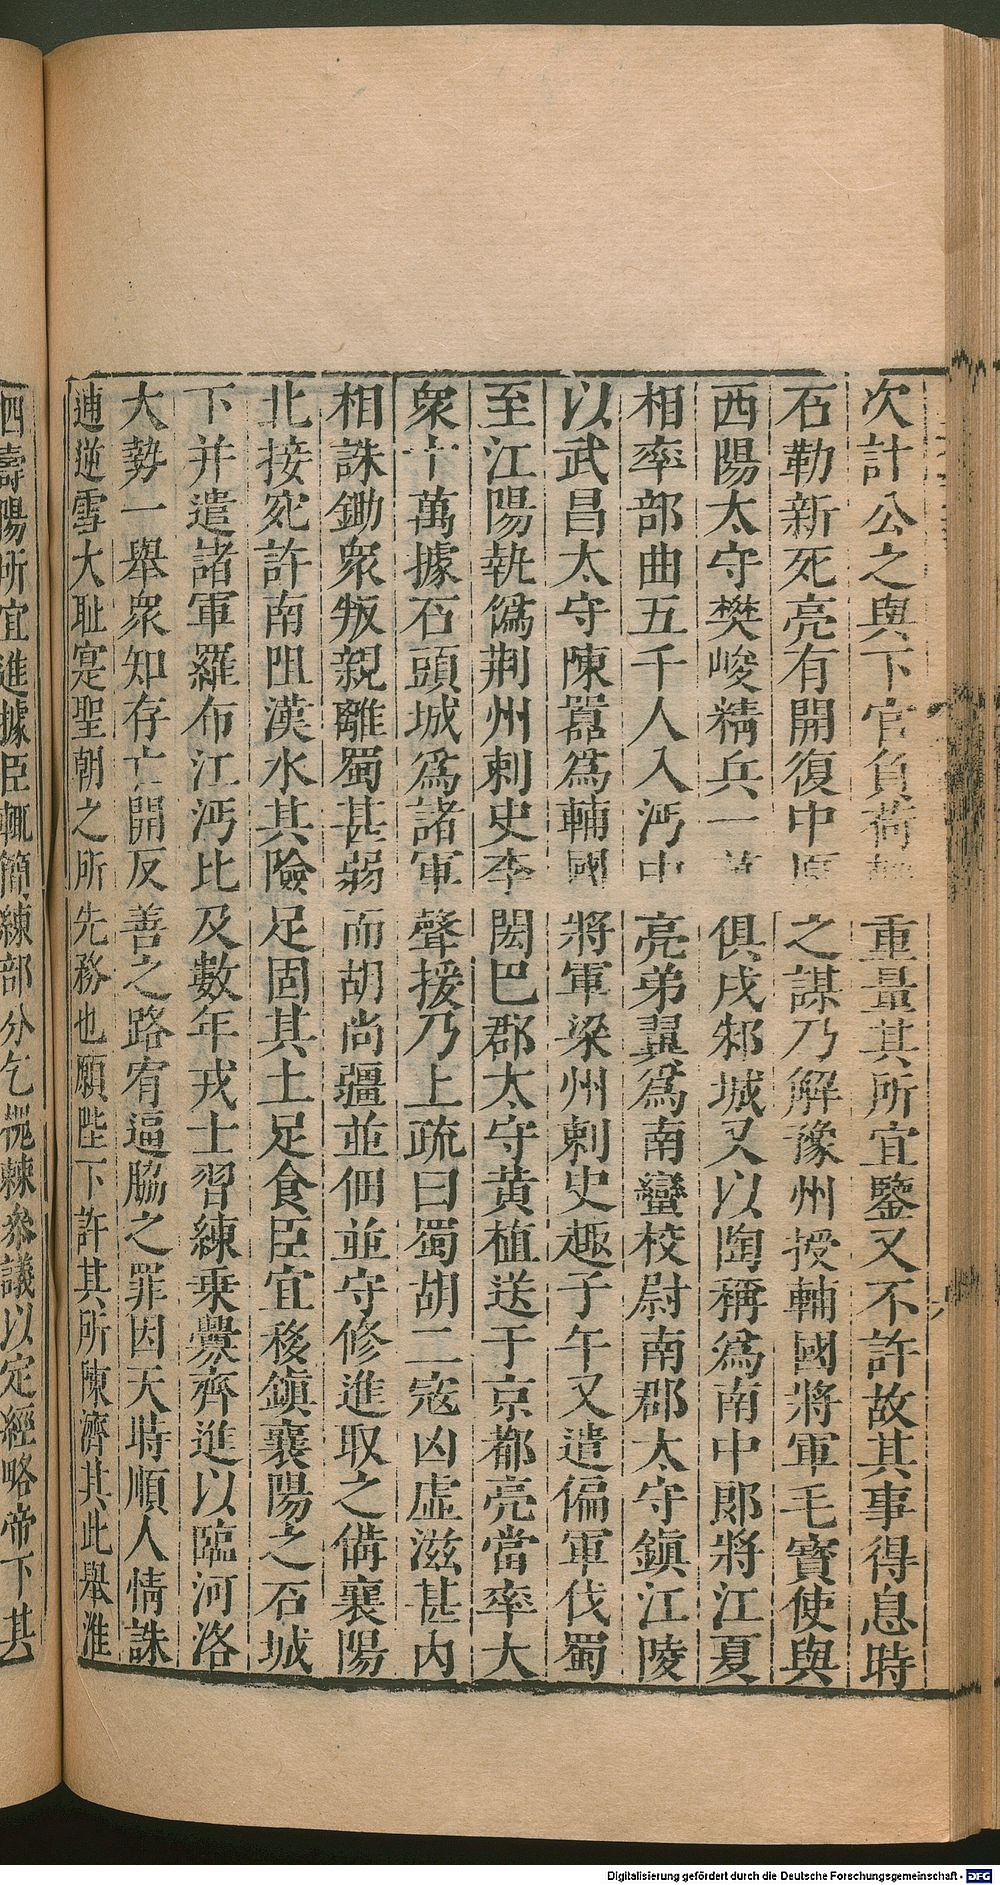 次計公之與下官負荷重量其所宜鑒又不許故其事得息時
石勒新死亮有開復中之謀乃解豫州授輔國將軍毛寶使與
西陽太守樊峻精兵一俱戍邾城又以陶稱爲南中郎將江夏
相率部曲五千人入沔中亮弟翼爲南蠻校尉南郡太守鎮江陵
以武昌太守陳囂爲輔國將軍梁州刺史趣子午又遣偏軍伐蜀
至江陽執僞荆州刺史李閎巴郡太守黄植送于京都亮當率大
衆十萬據石頭城爲諸軍聲援乃上疏曰蜀胡二寇凶虐滋甚内
相誅鋤衆叛親離蜀甚弱而胡尚疆並佃並守修進取之備襄陽
北接宛許南阻漢水其險足固其土足食臣宜移鎮襄陽之石城
下并遣諸軍羅布江沔比及數年戎士習練乗釁齊進以臨河洛
大勢一舉衆知存亡開反善之路宥逼脇之罪因天時順人情誅
逋逆雪大耻寔聖朝之所先務也願陛下許其所陳濟其此舉淮
泗壽陽所宜進據臣輒簡練部分乞槐棘叅議以定經略帝下其
Digitalisierung gefördert durch die Deutsche Forschungsgemeinschaft - DFG